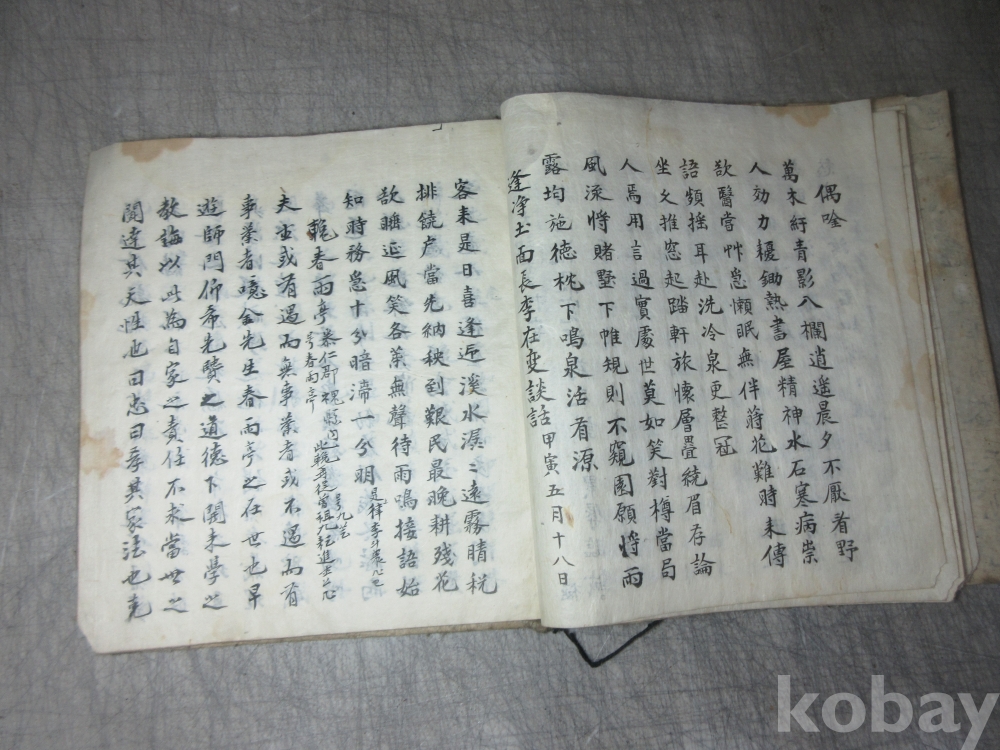 偶唫
萬木紆青影八欄逍遥晨夕不厭看野
人効力耰鋤熱書屋精神水石寒病崇
欲醫當艸急懶眠無伴蒔花難時来傳
語頻揺耳赴洗冷泉更整冠
坐久推窓起踏軒旅懷層疊繞眉存論
人焉用言過實處世莫如笑對樽當局
風流将賭墅下帷規則不窺園願将雨
露均施德枕下鳴泉活有源
逢淨土面長李在夾談話甲寅五月十八日
客来是日喜逢迎溪水潺〻遠霧晴税
排饒戶當先納秧到艱民最晚耕残花
欲睡延風笑各葉無聲待雨鳴接語始
知時務急十分暗滯一分明
輓春雨亭
号春雨亭
夫世或有遇而無事業者或不遇而有
事業者噫金先生春雨亭之在世也早
遊師門仰希先贒之道德下開来學之
教誨以此為自家之責任不求當世之
聞達其天性也曰忠曰孝其家法也
kobay